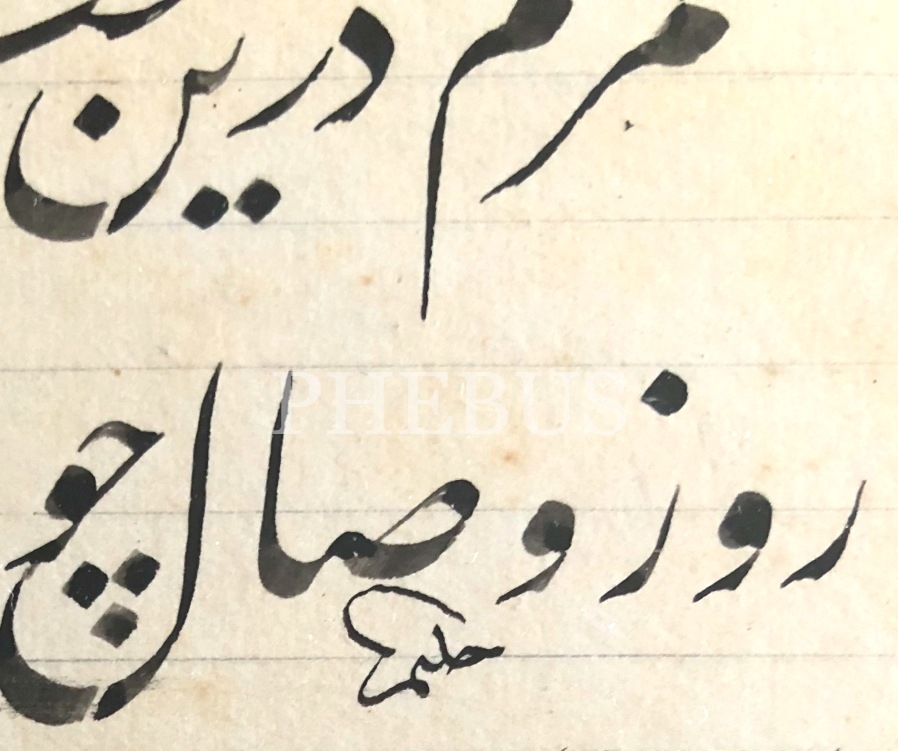 درین
PHEBUS
روز وصال چو
حلیم